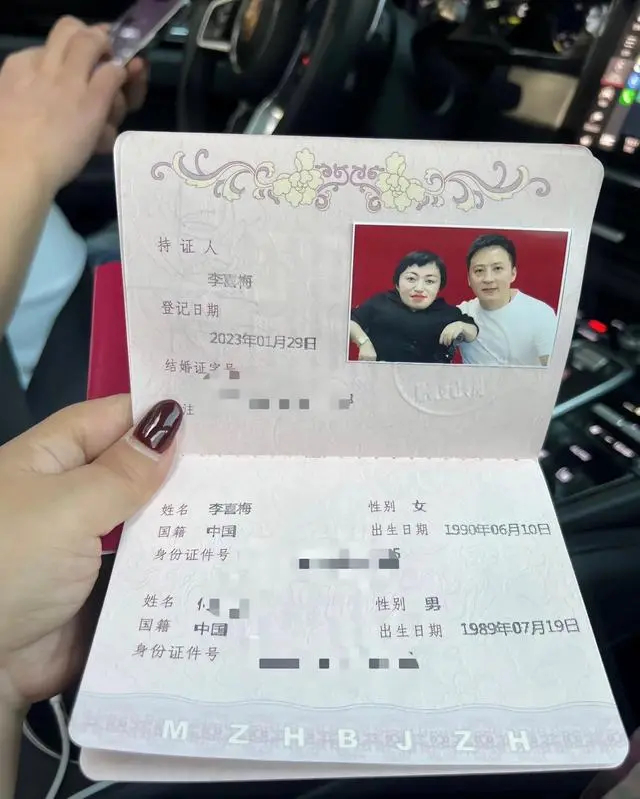 持证人
李喜梅
登记日期
2023年01月29日
结婚证字号
注
姓名 李喜梅 性别 女
国籍 中国 出生日期 1990年06月10日
身份证件号
姓名 性别 男
国籍 中国 出生日期 1989年07月19日
身份证件号
MZHBJZH